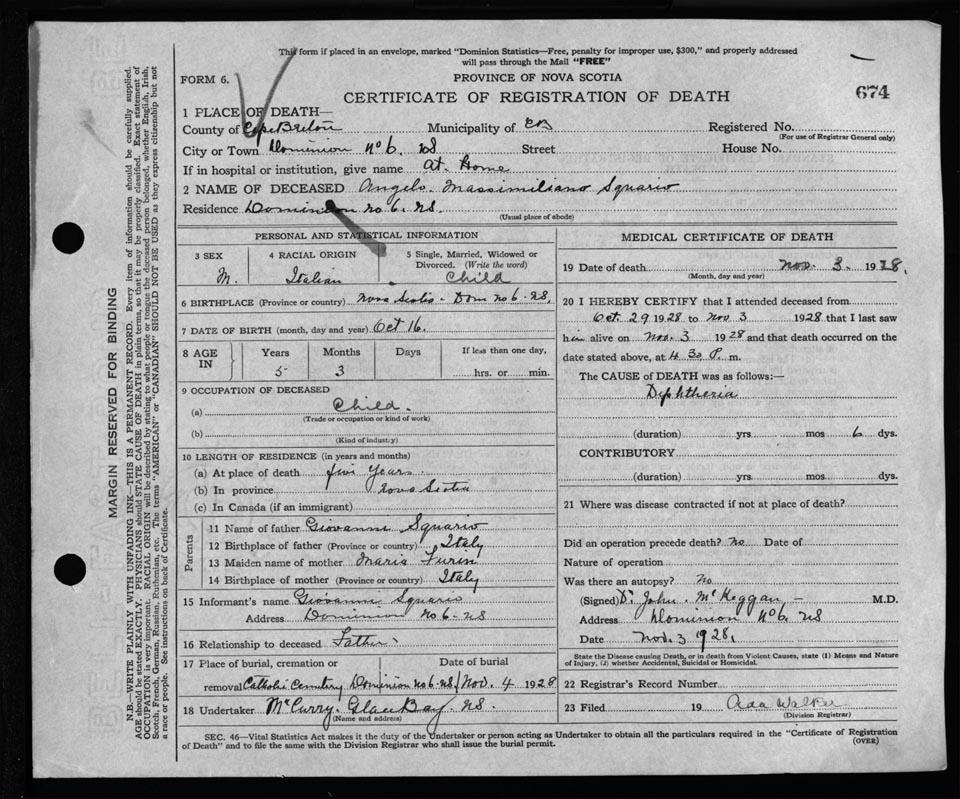 This form if placed in an envelope, marked "Dominion Statistics—Free, penalty for improper use, $300," and properly addressed
will pass through the Mail "FREE"
FORM 6.
PROVINCE OF NOVA SCOTIA
CERTIFICATE OF REGISTRATION OF DEATH
674
1 PLACE OF DEATH—
County of Cape Breton Municipality of CB Registered No.
(For use of Registrar General only)
City or Town Dominion No 6. NS Street House No.
If in hospital or institution, give name At Home
2 NAME OF DECEASED Angelo. Massimiliano Squario
Residence Dominion no 6. NS.
(Usual place of abode)
PERSONAL AND STATISTICAL INFORMATION
3 SEX 4 RACIAL ORIGIN 5 Single, Married, Widowed or
Divorced. (Write the word)
M. Italian Child
6 BIRTHPLACE (Province or country) Nova Scotia - Dom no 6 - NS,
7 DATE OF BIRTH (month, day and year) Oct 16.
8 AGE IN Years Months Days If less than one day,
5 3 hrs. or min.
9 OCCUPATION OF DECEASED
(a) Child.
(Trade or occupation or kind of work)
(b)
(Kind of industry)
10 LENGTH OF RESIDENCE (in years and months)
(a) At place of death five Years
(b) In province Nova Scotia
(c) In Canada (if an immigrant)
Parents
11 Name of father Giovanni Squario
12 Birthplace of father (Province or country) Italy
13 Maiden name of mother Maria Furin
14 Birthplace of mother (Province or country) Italy
15 Informant's name Giovanni Squario
Address Dominion No 6 - NS
16 Relationship to deceased Father
17 Place of burial, cremation or Date of burial
removal Catholic Cemetery Dominion no 6. NS Nov. 4 1928
18 Undertaker McCurry. Glace Bay. NS.
(Name and address)
MEDICAL CERTIFICATE OF DEATH
19 Date of death Nov. 3. 1928.
(Month, day and year)
20 I HEREBY CERTIFY that I attended deceased from
Oct. 29 1928 to Nov 3 1928 that I last saw
him alive on Nov. 3 1928 and that death occurred on the
date stated above, at 4 30 P. m.
The CAUSE of DEATH was as follows:—
Diphtheria
(duration) yrs mos 6 dys.
CONTRIBUTORY
(duration) yrs mos dys.
21 Where was disease contracted if not at place of death?
Did an operation precede death? no Date of
Nature of operation
Was there an autopsy? No
(Signed) Dr John. McKeggan - M.D.
Address Dominion No 6. NS
Date Nov. 3 1928.
State the Disease causing Death, or in death from Violent Causes, state (1) Means and Nature
of Injury, (2) whether Accidental, Suicidal or Homicidal.
22 Registrar's Record Number
23 Filed 19 Ada Walker
(Division Registrar)
SEC. 46—Vital Statistics Act makes it the duty of the Undertaker or person acting as Undertaker to obtain all the particulars required in the "Certificate of Registration
of Death" and to file the same with the Division Registrar who shall issue the burial permit.
(OVER)
MARGIN RESERVED FOR BINDING
N.B.—WRITE PLAINLY WITH UNFADING INK—THIS IS A PERMANENT RECORD. Every item of information should be carefully supplied.
AGE should be stated EXACTLY. PHYSICIANS should STATE CAUSE OF DEATH in plain terms, so that it may be properly classified. Exact statement of
OCCUPATION is very important. RACIAL ORIGIN will be described by stating to what people or tongue the deceased person belonged, whether English, Irish,
Scotch, French, German, Russian, Ruthenian, etc. The terms "AMERICAN" or "CANADIAN" SHOULD NOT BE USED as they express citizenship but not
a race or people. See instructions on back of Certificate.